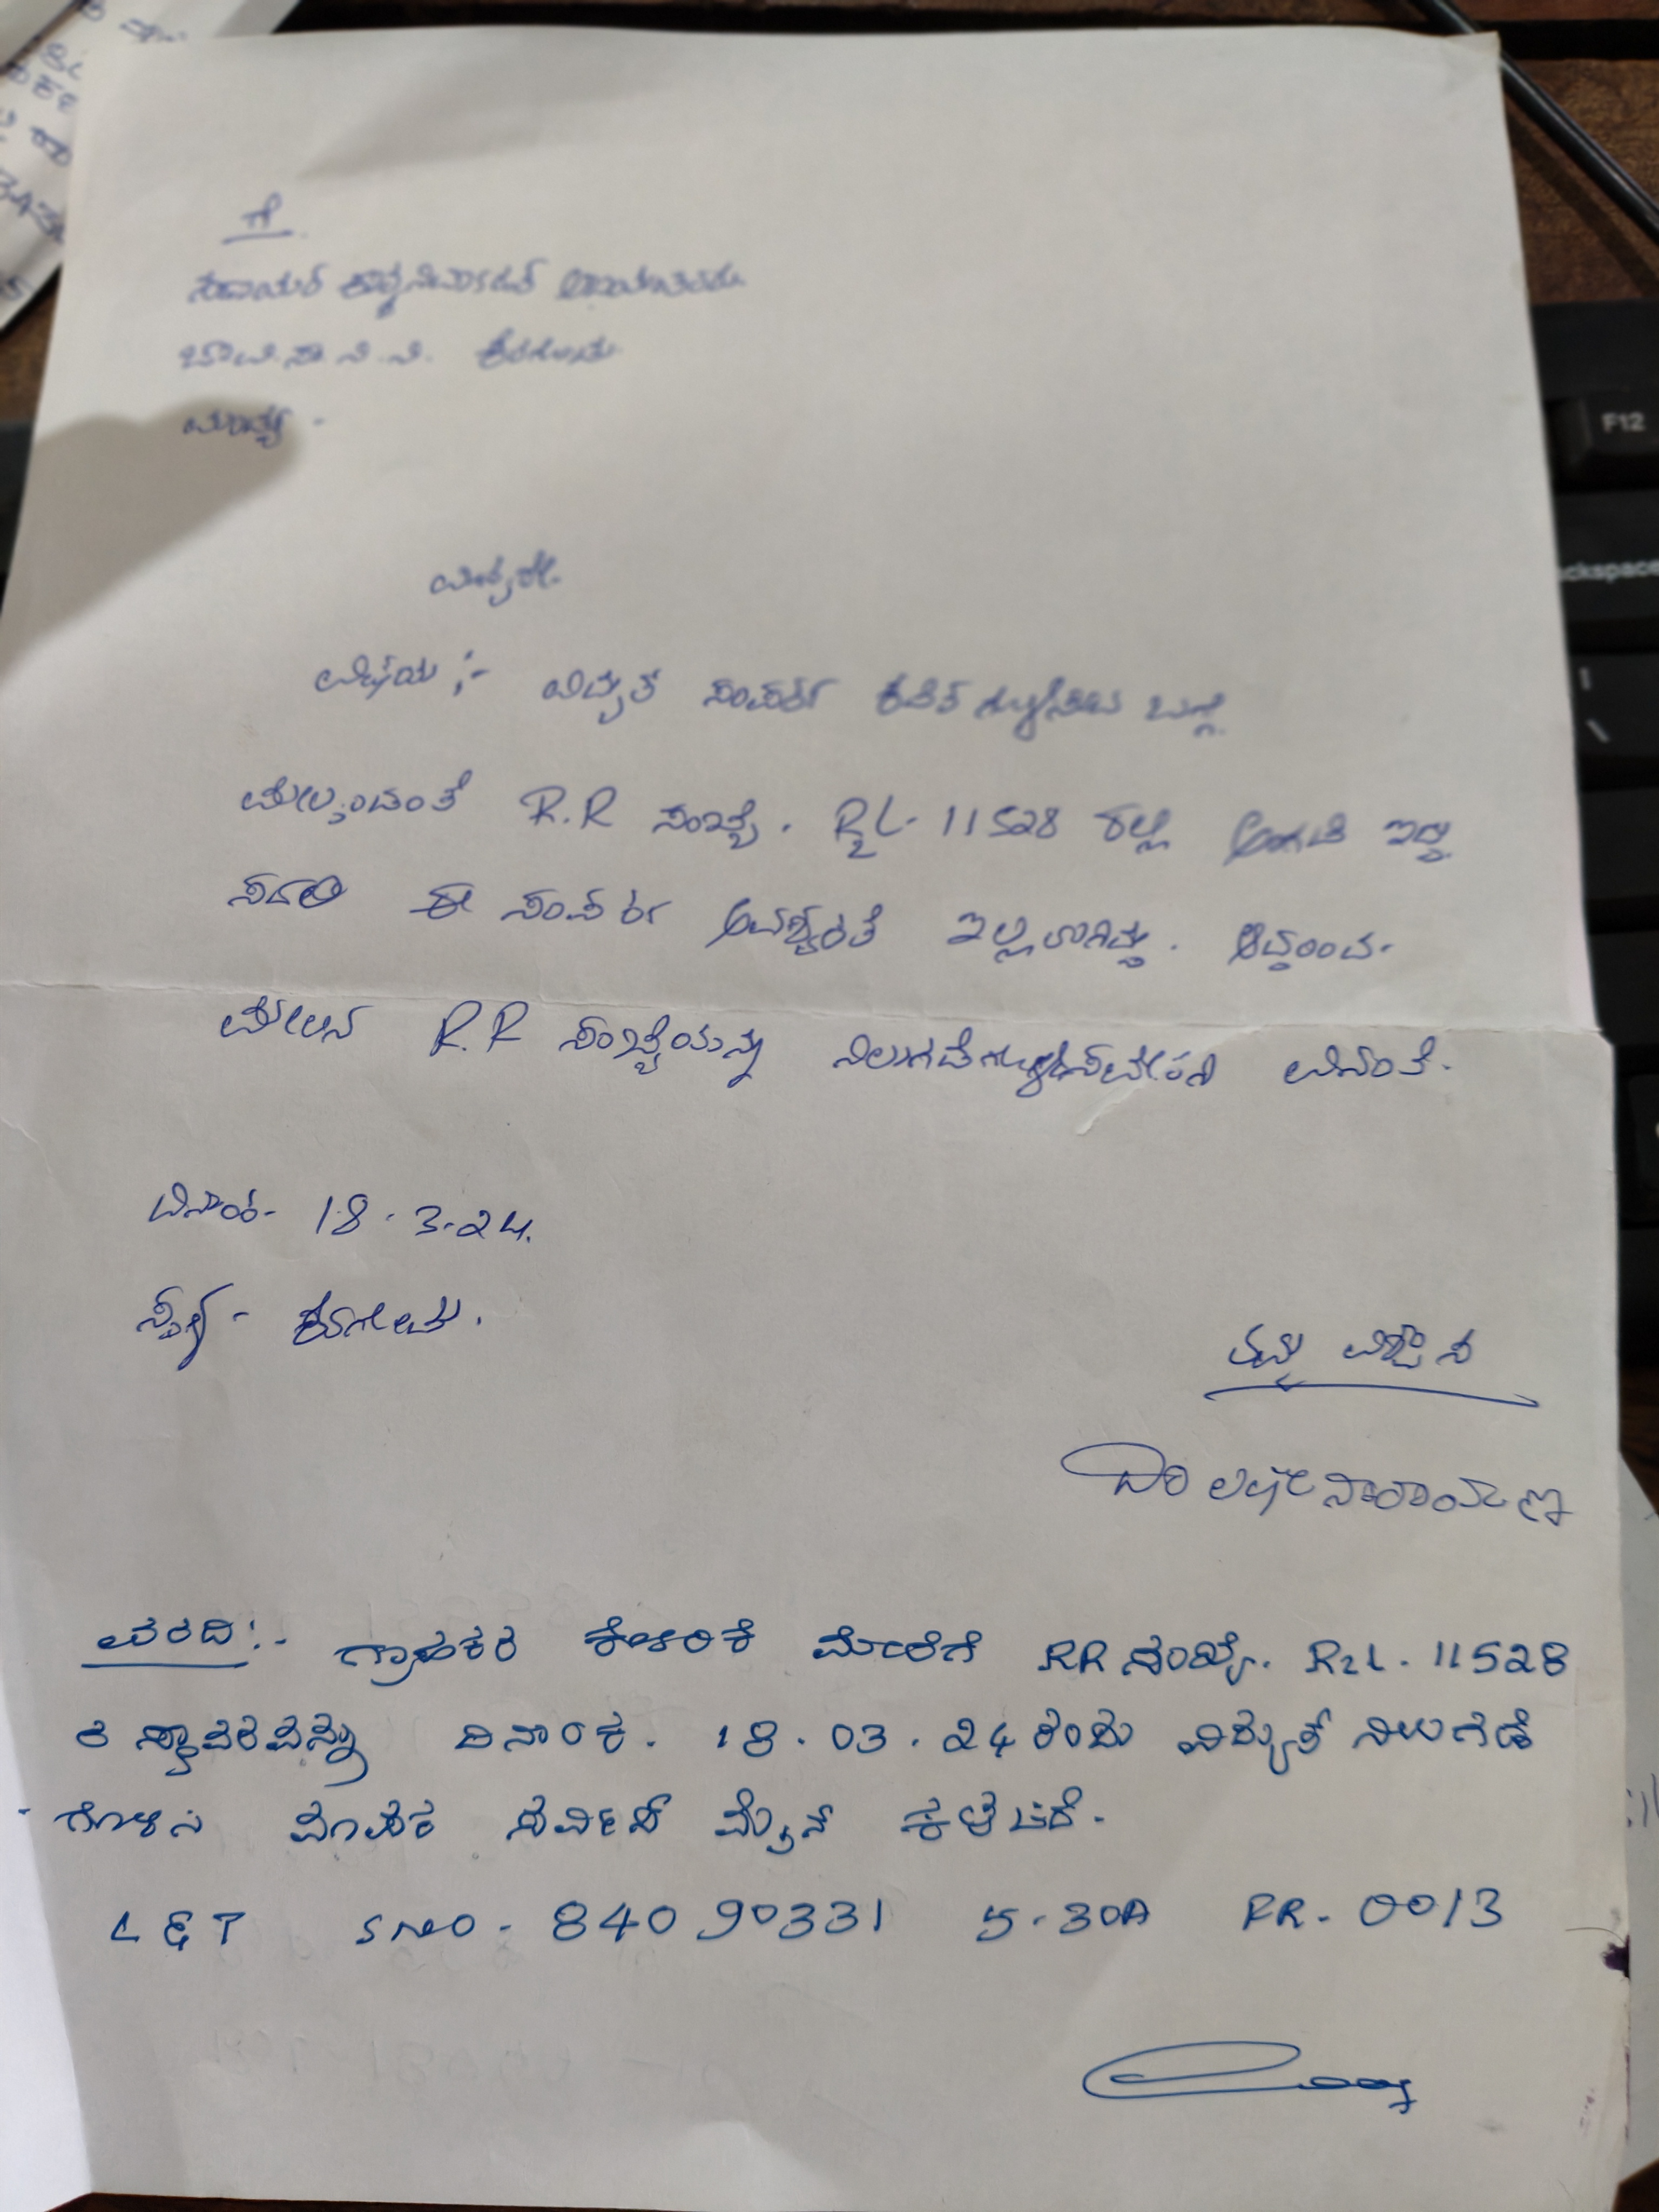 ಗೆ
ಸಹಾಯಕ ಕಾರ್ಯನಿರ್ವಾಹಕ
ಚಾ.ವಿ.ಸ.ನಿ.ನಿ.
ಮಾನ್ಯ
ವಿಷಯ :- ವಿದ್ಯುತ ಸಂಪರ್ಕ ಕಡಿತಗೊಳ್ಳಿಸಿರುವ ಬಗ್ಗೆ
ಮೇಲ್ಕಂಡಂತೆ R.R ಸಂಖ್ಯೆ. R2L-11528 ರಲ್ಲಿ ಇದ್ದು
ಸದರಿ ಈ ಸಂಪರ್ಕ ಅವಶ್ಯಕತೆ ಇಲ್ಲವಾಗಿದ್ದು. ಆದ್ದರಿಂದ.
ಮೇಲಿನ R.R ಸಂಖ್ಯೆಯನ್ನು ವಿನಂತಿ.
ದಿನಾಂಕ- 18.3.24.
ಸ್ಥಳ-
ತಮ್ಮ ವಿಶ್ವಾಸಿ
ಲಕ್ಷ್ಮೀನಾರಾಯಣ
ವರದಿ:- ಗ್ರಾಹಕರ ಕೋರಿಕೆ ಮೇರೆಗೆ RR ಸಂಖ್ಯೆ. R2L.11528
ರ ಸ್ಥಾವರವನ್ನು ದಿನಾಂಕ. 18.03.24ರಂದು ವಿದ್ಯುತ್ ನಿಲುಗಡೆ
ಗೊಳಿಸಿ ಮಾಪಕ ಸರ್ವೀಸ್ ಮೈನ್ ಕಳಚಿದೆ.
L&T SNO-84090331 5-30A FR-0013